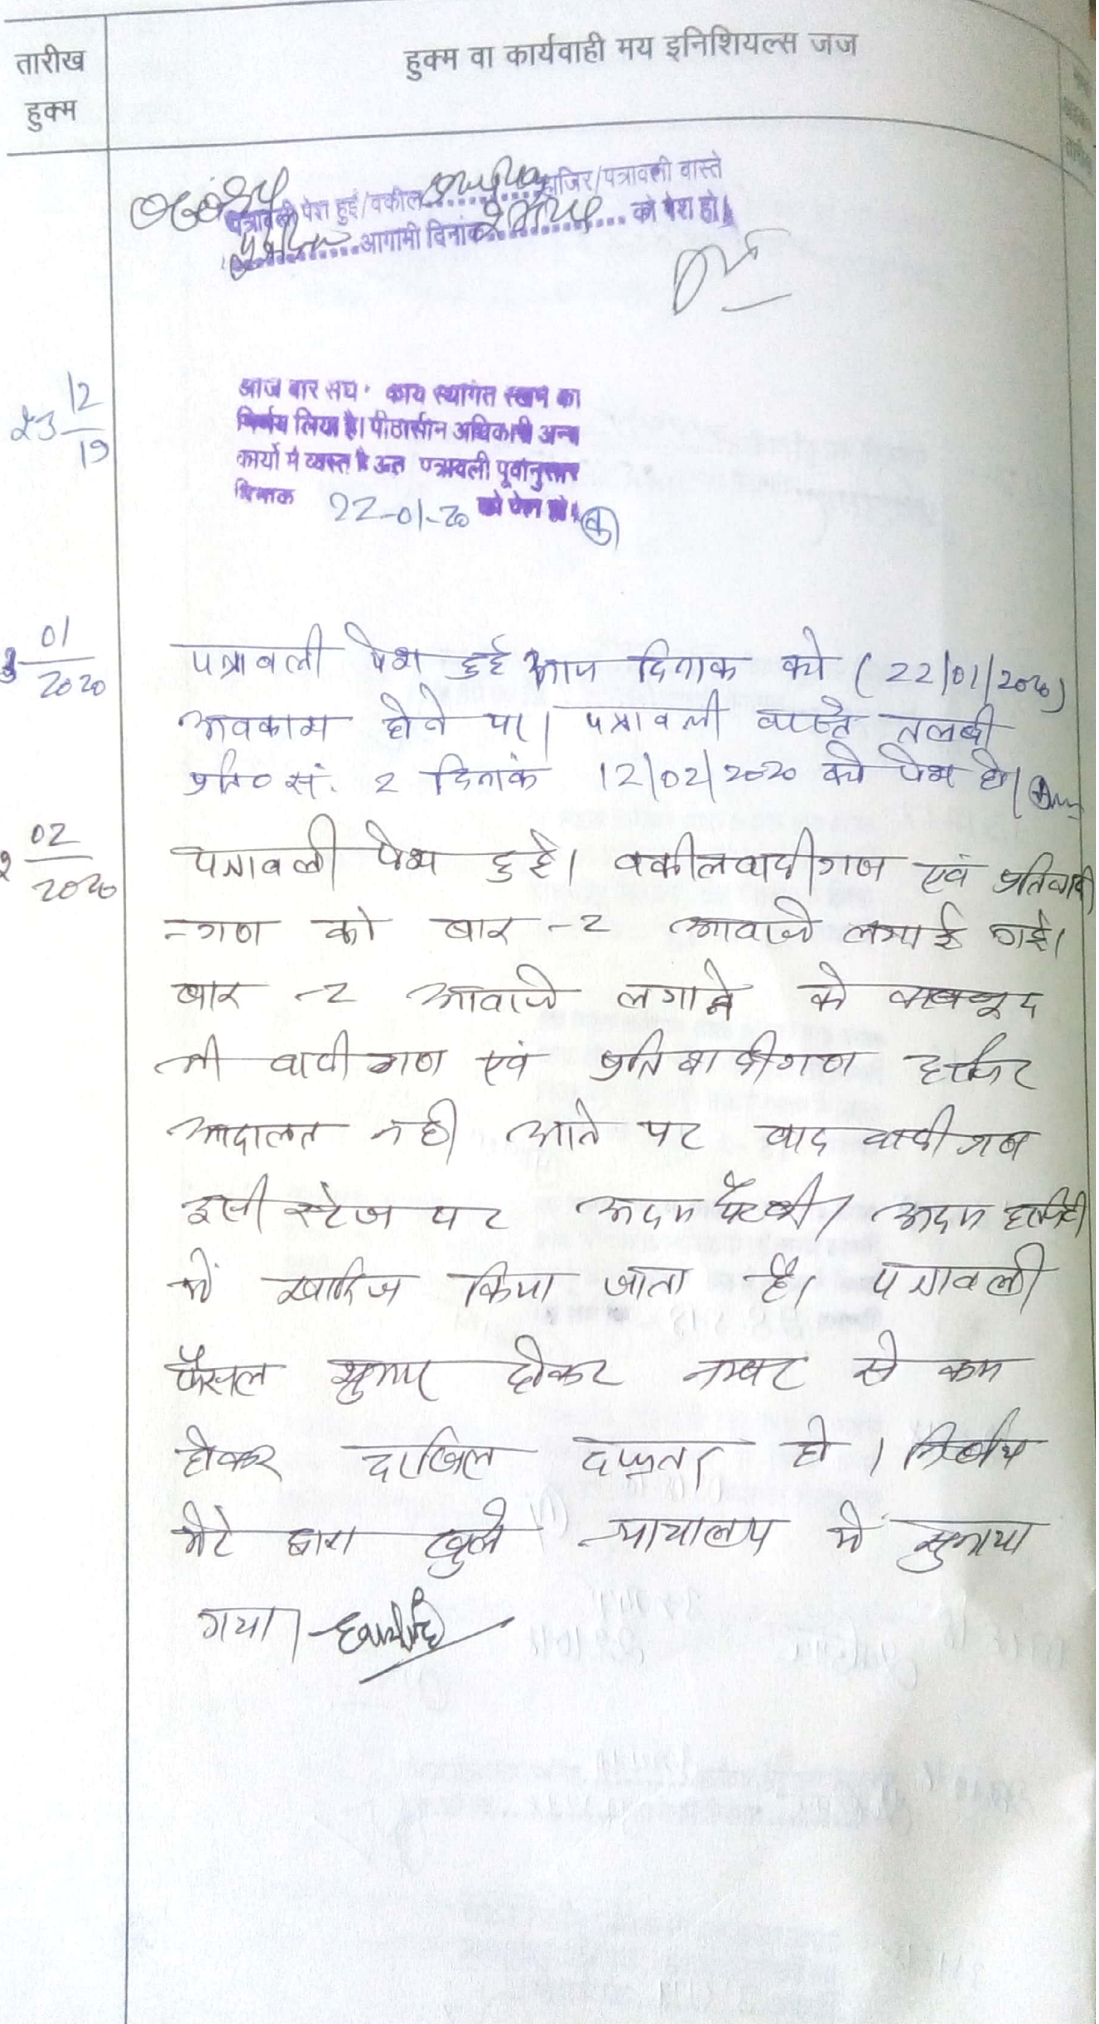 तारीख
हुक्म
हुक्म वा कार्यवाही मय इनिशियल्स जज
पत्रावली पेश हुई/वकील हाजिर/पत्रावली वास्ते
आगामी दिनांक को पेश हो।
23 12/19
आज बार संघ कार्य स्थगित रखने का
निर्णय लिया है। पीठासीन अधिकारी अन्य
कार्यो में व्यस्त है अत पत्रावली पूर्वानुसार
दिनांक 22-01-20 को पेश हो।
01/2020
पत्रावली पेश हुई आज दिनाक को (22/01/2020)
अवकाश होने पर। पत्रावली वास्ते तलबी
प्रति० सं. 2 दिनांक 12/02/2020 को पेश हो।
02/2020
पत्रावली पेश हुई। वकीलवादीगण एवं प्रतिवादी
-गण को बार -2 आवाजे लगाई गई।
बार -2 आवाजे लगाने के बावजूद
भी वादीगण एवं प्रतिवादीगण हाजिर
अदालत नही आने पर वाद वादीगण
इसी स्टेज पर अदम पैरवी/अदम हाजिरी
में खारिज किया जाता है। पत्रावली
फैसल शुमार होकर नम्बर से कम
होकर दाखिल दफ्तर हो। निर्णय
मेरे द्वारा खुले न्यायालय में सुनाया
गया।